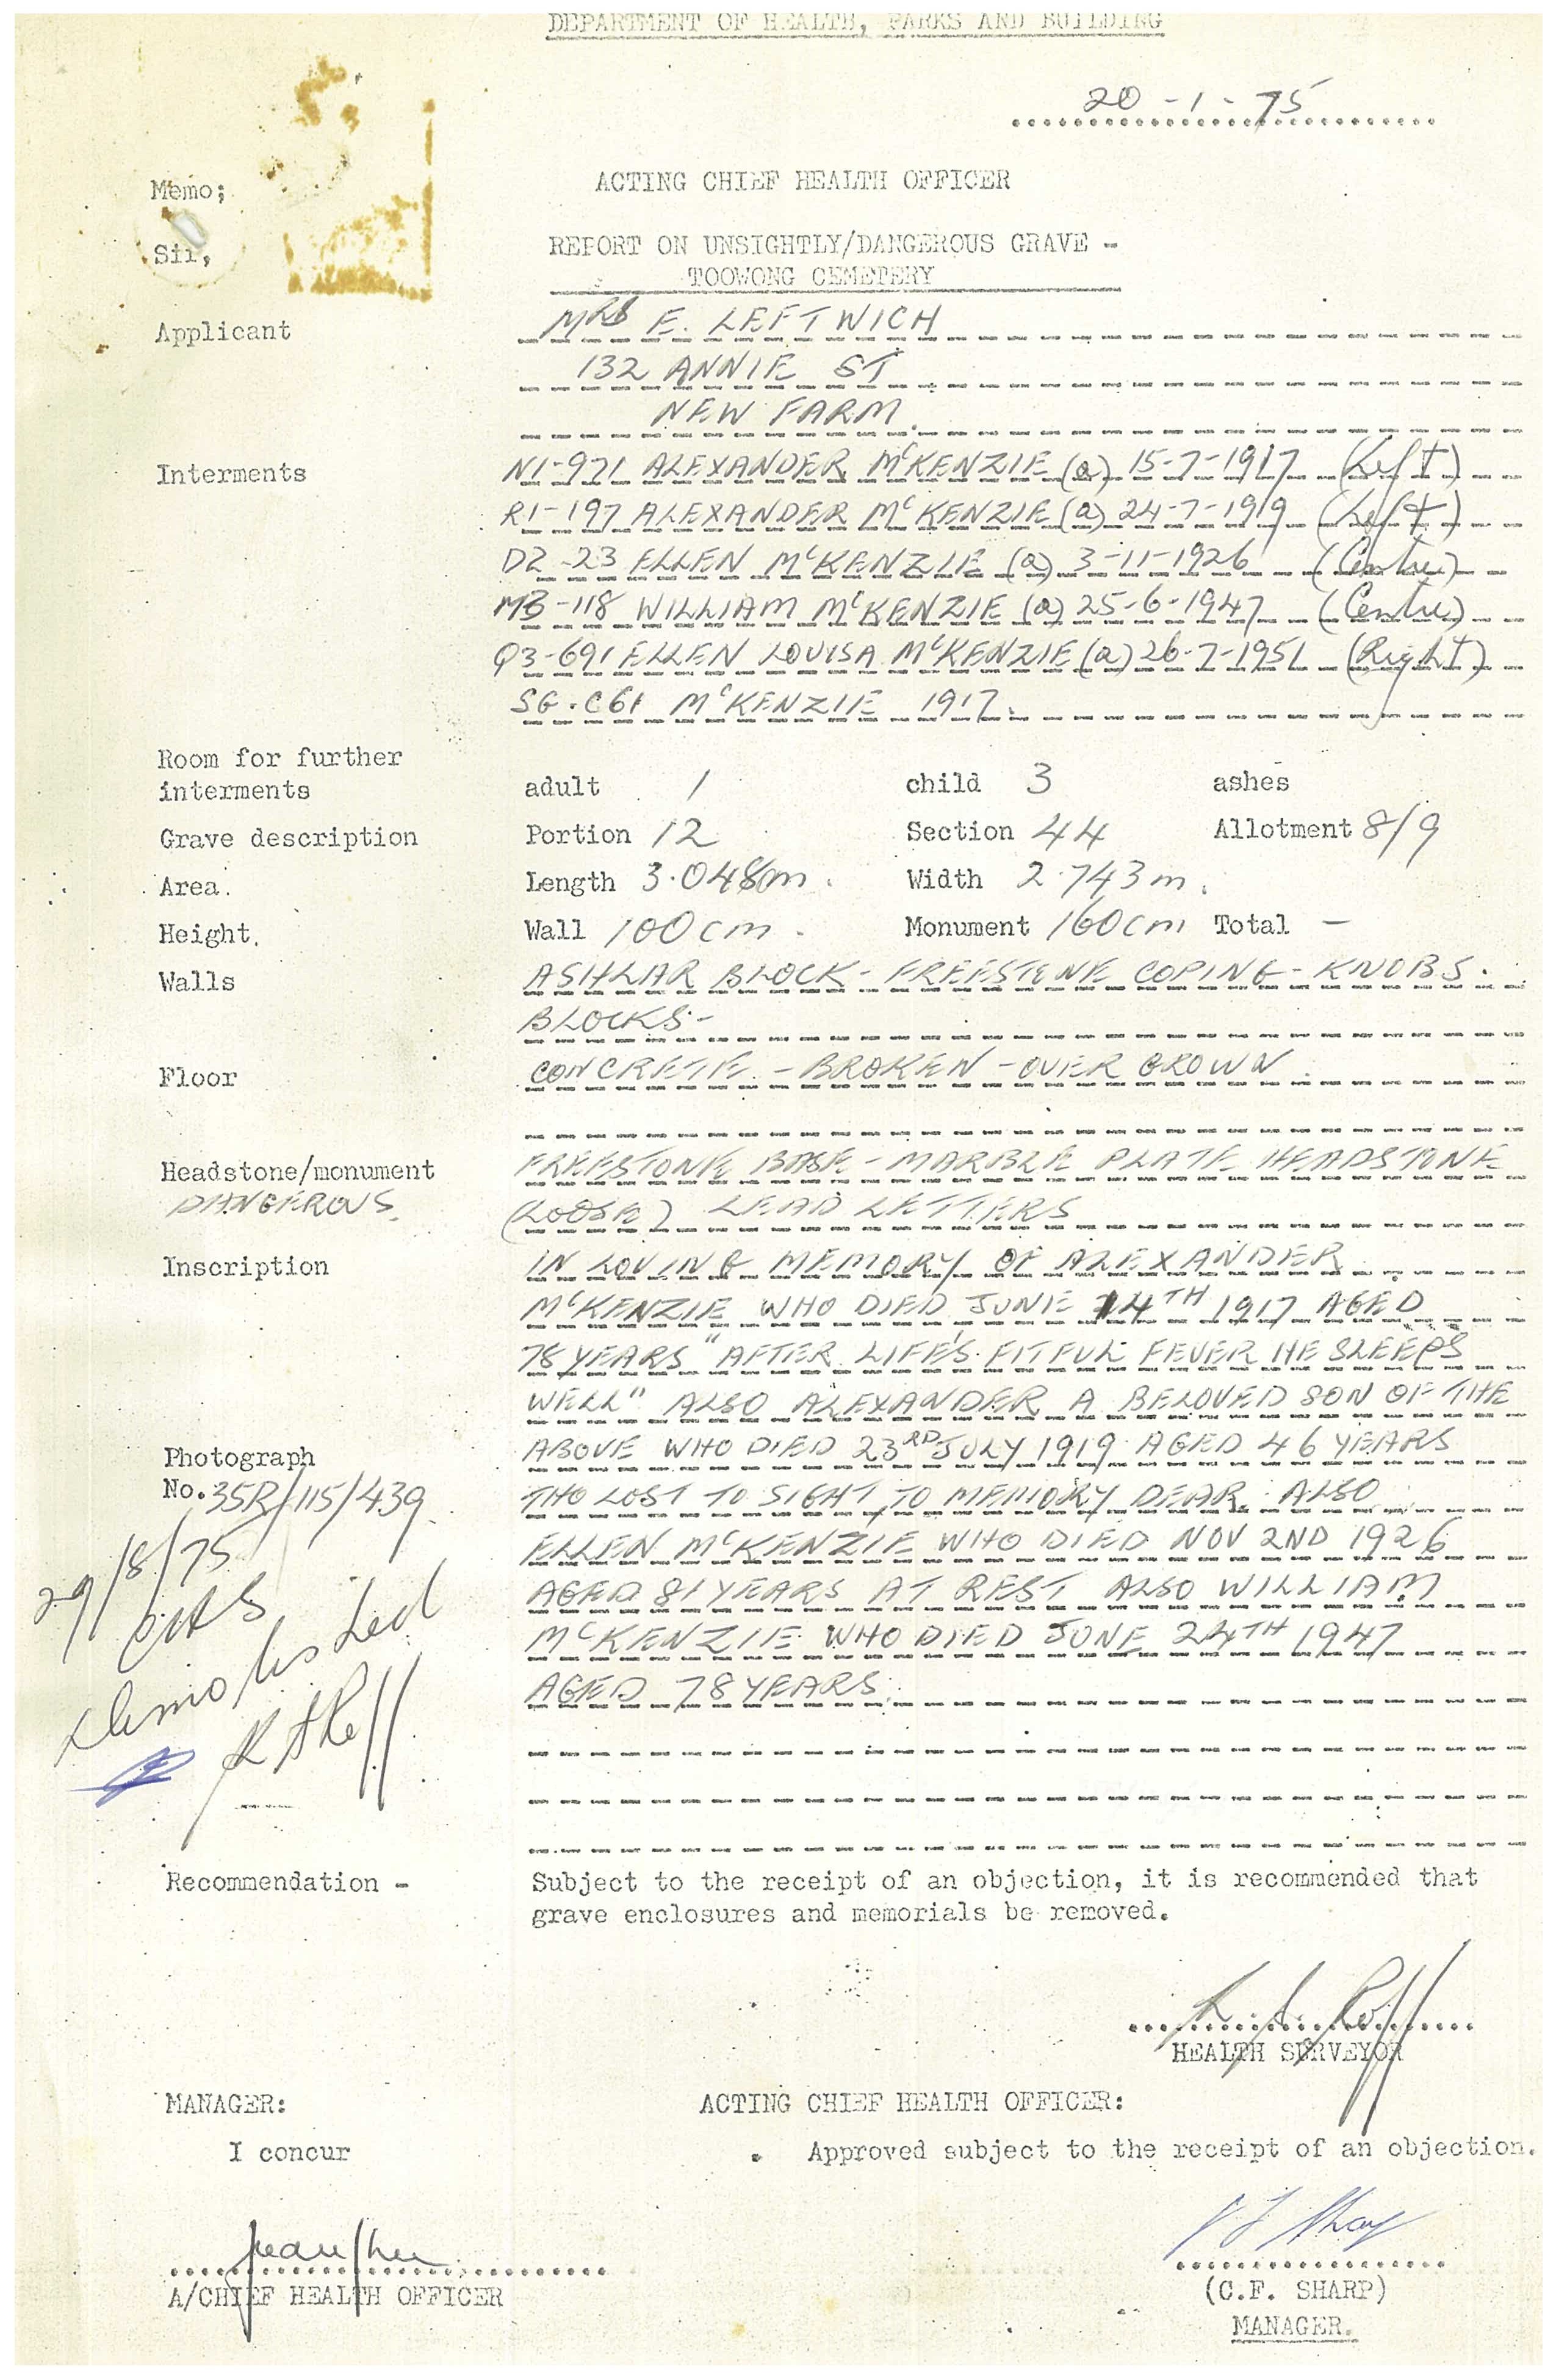 DEPARTMENT OF HEALTH, PARKS AND BUILDING
20-1-75
Memo;
ACTING CHIEF HEALTH OFFICER
Sir,
REPORT ON UNSIGHTLY/DANGEROUS GRAVE -
TOOWONG CEMETERY
Applicant MRS E. LEFTWICH
132 ANNIE ST
NEW FARM.
Interments N1-971 ALEXANDER McKENZIE (a) 15-7-1917 (Left)
R1-197 ALEXANDER McKENZIE (a) 24-7-1919 (Left)
D2-23 ELLEN McKENZIE (a) 3-11-1926 (Centre)
MB-118 WILLIAM McKENZIE (a) 25-6-1947 (Centre)
Q3-691 ELLEN LOUISA McKENZIE (a) 26-7-1951 (Right)
SG.C61 McKENZIE 1917.
Room for further
interments adult 1 child 3 ashes
Grave description Portion 12 Section 44 Allotment 8/9
Area. Length 3.048m. Width 2.743m.
Height. Wall 100cm. Monument 160cm Total -
Walls ASHLAR BLOCK - FREESTONE COPING - KNOBS.
BLOCKS-
Floor CONCRETE - BROKEN - OVER GROWN.
Headstone/monument FREESTONE BASE - MARBLE PLATE HEADSTONE
DANGEROUS. (LOOSE) LEAD LETTERS
Inscription IN LOVING MEMORY OF ALEXANDER
McKENZIE WHO DIED JUNE 14TH 1917 AGED
78 YEARS "AFTER LIFE'S FITFUL FEVER HE SLEEPS
WELL" ALSO ALEXANDER A BELOVED SON OF THE
ABOVE WHO DIED 23RD JULY 1919 AGED 46 YEARS
THO LOST TO SIGHT, TO MEMORY DEAR. ALSO
ELLEN McKENZIE WHO DIED NOV 2ND 1926
AGED 81 YEARS AT REST ALSO WILLIAM
McKENZIE WHO DIED JUNE 24TH 1947
AGED 78 YEARS.
Photograph
No. 35R/115/439.
29/8/75
demolished
Recommendation - Subject to the receipt of an objection, it is recommended that
grave enclosures and memorials be removed.
HEALTH SURVEYOR
MANAGER: ACTING CHIEF HEALTH OFFICER:
I concur Approved subject to the receipt of an objection.
A/CHIEF HEALTH OFFICER
(C.F. SHARP)
MANAGER.